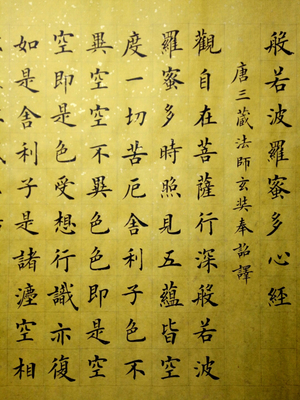 般若波羅蜜多心經
唐三藏法師玄奘奉詔譯
觀自在菩薩行深般若波
羅蜜多時照見五蘊皆空
度一切苦厄舍利子色不
異空空不異色色即是空
空即是色受想行識亦復
如是舍利子是諸灋空相